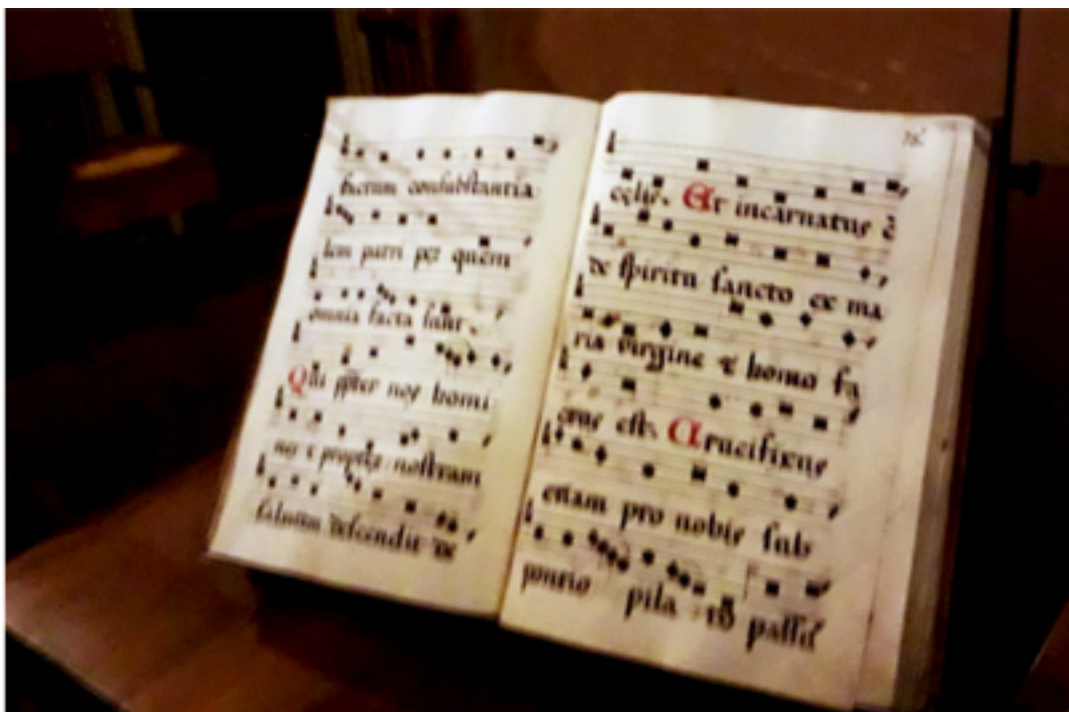 factum consubstantia
lem patri per quem
omnia facta sunt.
Qui ꝓpter nos homi
nes ⁊ propter nostram
salutem descendit de
celis. Et incarnatus ē
de spiritu sancto ex ma
ria virgine ⁊ homo fa
ctus est. Crucifixus
etiam pro nobis sub
pontio pila to passu